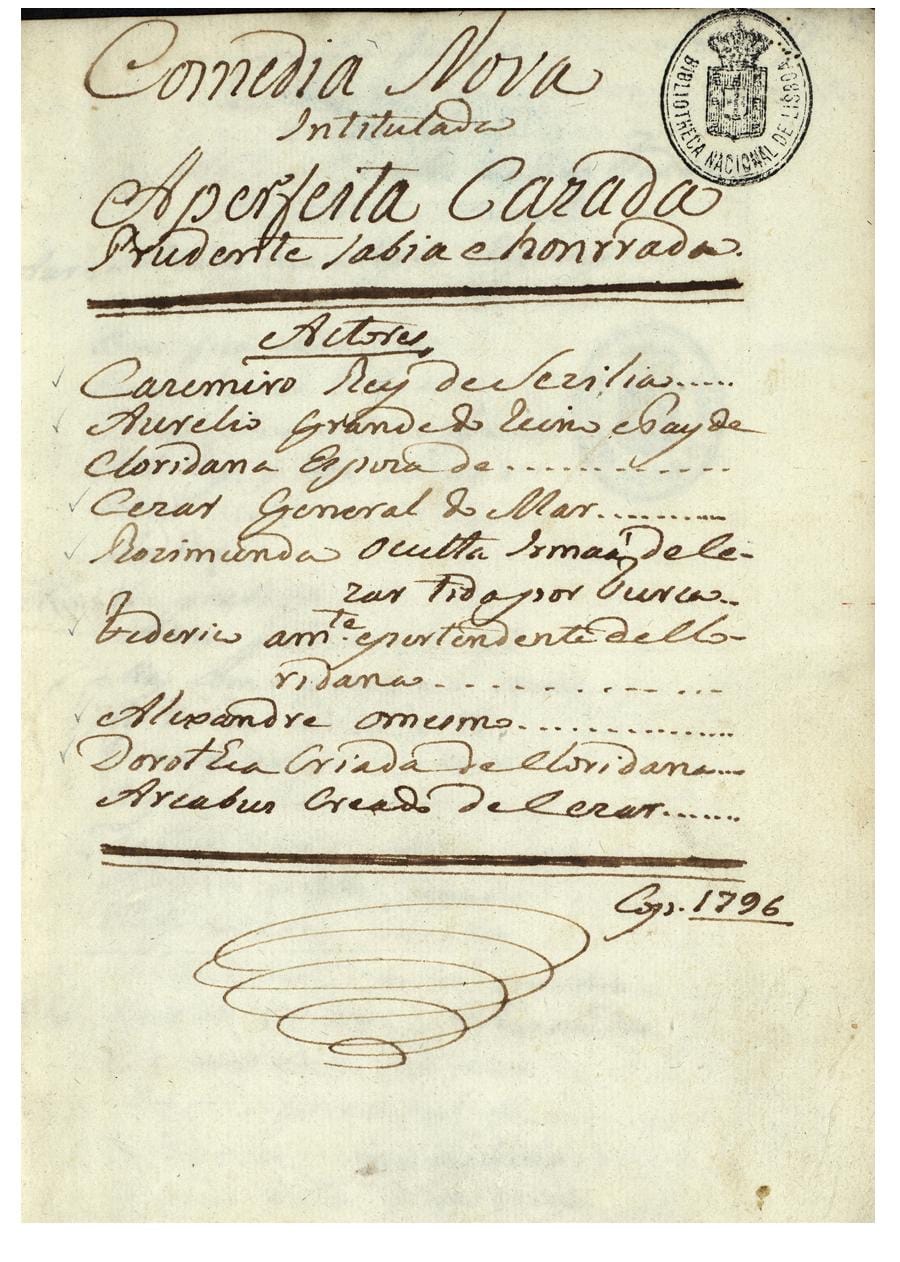 Comedia Nova
Intitulada
A perfeita Cazada
Prudente sabia e honrrada.
BIBLIOTHECA NACIONAL DE LISBOA
Actores,
Cazemiro Rey de Sezilia.....
Aurelio Grande do Reino e Pay de
Cloridana Espoza de ............
Cezar General do Mar..........
Rozimunda Oculta Irmaã de Ce-
zar tida por Turca...
Federico am.te e pertendente de Clo-
ridana .............
Alexandre o mesmo...............
Dorothea Criada de Cloridana....
Arcabus Creado de Cezar.......
Cop. 1796